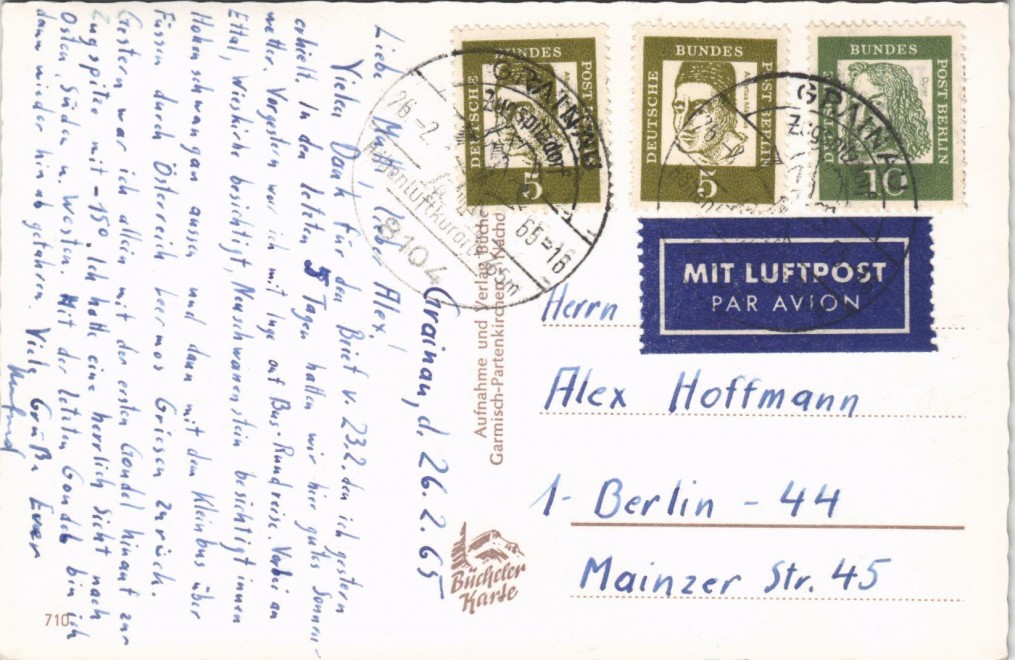 Grainau, d. 26.2.65
Liebe Mutti, lieber Alex!
Vielen Dank für den Brief v. 23.2. den ich gestern
erhielt. In den letzten 5 Tagen hatten wir hier gutes Sonnen-
wetter. Vorgestern war ich mit Inge auf Bus-Rundreise. Vorbei an
Ettal, Wieskirche besichtigt, Neuschwanstein besichtigt innen
Hohenschwangau aussen und dann mit dem Kleinbus über
Füssen durch Österreich Griesen zurück.
Gestern war ich allein mit der ersten Gondel hinauf zur
Zugspitze mit -15°. Ich hatte eine herrlich Sicht nach
Osten, Süden u. Westen. Mit der letzten Gondel bin ich
dann wieder hinab gefahren. Viele Grüße Euer
710
Aufnahme und Verlag Büche
Garmisch-Partenkirchen Nachd
Bücheler
Karte
DEUTSCHE BUNDES POST BERLIN
5
DEUTSCHE BUNDES POST BERLIN
5
DEUTSCHE BUNDES POST BERLIN
Dürer
10
GRAINAU
Zugspitzdorf
26.-2. 65-16
8104
GRAINAU
MIT LUFTPOST
PAR AVION
Herrn
Alex Hoffmann
1- Berlin - 44
Mainzer Str. 45